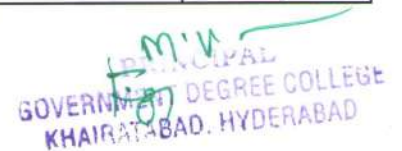 M.V
PRINCIPAL
GOVERNMENT DEGREE COLLEGE
KHAIRATABAD. HYDERABAD